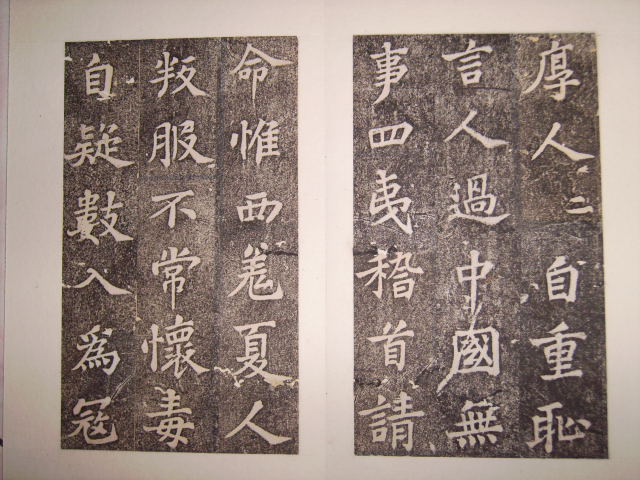 厚人二自重恥
言人過中國無
事四夷稽首請
命惟西羌夏人
叛服不常懷毒
自疑數入為寇